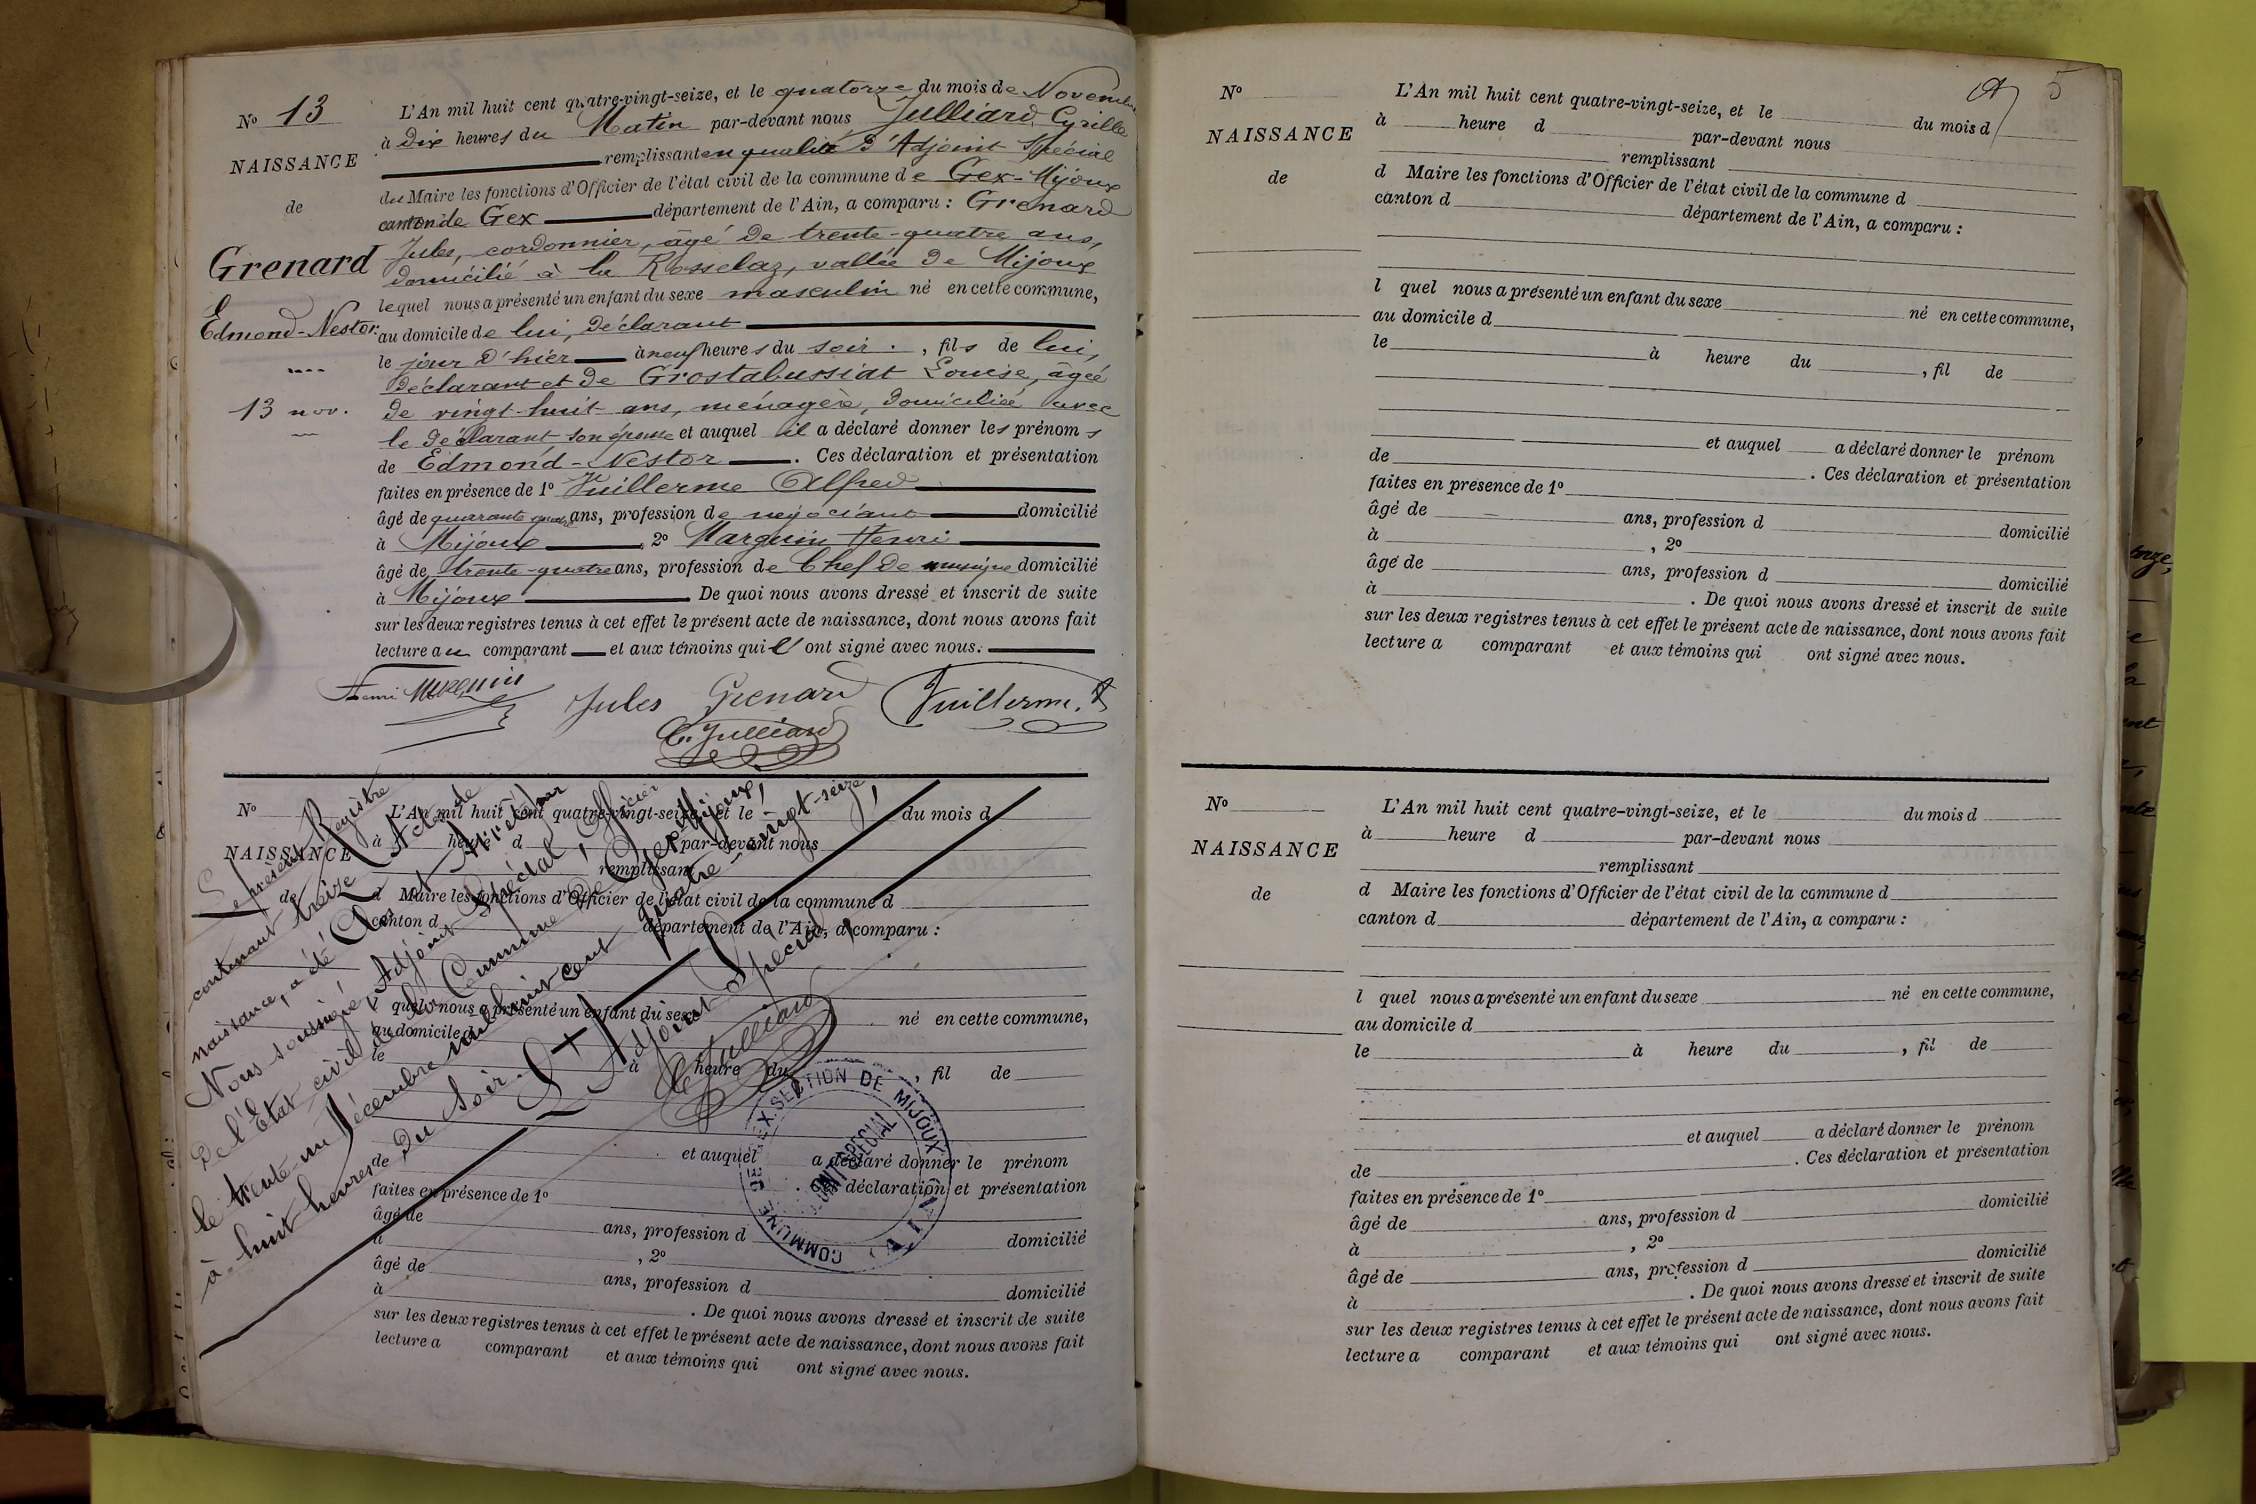 No 13
NAISSANCE
de
Grenard
Edmond-Nestor
13 nov.
L'An mil huit cent quatre-vingt-seize, et le quatorze du mois de Novembre
à Dix heures du Matin par-devant nous Julliard Cyrille
remplissant en qualité d'Adjoint Spécial
du Maire les fonctions d'Officier de l'état civil de la commune de Gex-Mijoux
canton de Gex département de l'Ain, a comparu : Grenard
Jules, cordonnier, âgé de trente-quatre ans,
domicilié à la Rosselaz, vallée de Mijoux
lequel nous a présenté un enfant du sexe masculin né en cette commune,
au domicile de lui, déclarant
le jour d'hier à neuf heures du soir, fils de lui,
déclarant et de Grostabussiat Louise, âgée
de vingt-huit ans, ménagère, domiciliée avec
le déclarant, son épouse et auquel il a déclaré donner les prénoms
de Edmond-Nestor. Ces déclaration et présentation
faites en présence de 1º Vuillerme Alfred
âgé de quarante quatre ans, profession de négociant domicilié
à Mijoux, 2º Marguin Henri
âgé de trente-quatre ans, profession de Chef de musique domicilié
à Mijoux De quoi nous avons dressé et inscrit de suite
sur les deux registres tenus à cet effet le présent acte de naissance, dont nous avons fait
lecture au comparant et aux témoins qui ont signé avec nous.
Henri Marguin Jules Grenard Vuillerme. A
C. Julliard
No
NAISSANCE
de
L'An mil huit cent quatre-vingt-seize, et le du mois d
à heure d par-devant nous
remplissant
d Maire les fonctions d'Officier de l'état civil de la commune d
canton d département de l'Ain, a comparu :
l quel nous a présenté un enfant du sexe né en cette commune,
au domicile d
le à heure du , fil de
et auquel a déclaré donner le prénom
de . Ces déclaration et présentation
faites en présence de 1º
âgé de ans, profession d domicilié
à , 2º
âgé de ans, profession d domicilié
à . De quoi nous avons dressé et inscrit de suite
sur les deux registres tenus à cet effet le présent acte de naissance, dont nous avons fait
lecture a comparant et aux témoins qui ont signé avec nous.
Le présent Registre
contenant treize Actes de
naissance, a été Clos et Arrêté par
Nous soussigné, Adjoint Spécial, Officier
de l'Etat civil de la Commune de Gex-Mijoux,
le trente-un Décembre mil huit cent quatre-vingt-seize,
à huit heures du Soir.
L'Adjoint Spécial,
C. Julliard
COMMUNE DE GEX. SECTION DE MIJOUX
(AIN)
ADJOINT SPECIAL
5
No
NAISSANCE
de
L'An mil huit cent quatre-vingt-seize, et le du mois d
à heure d par-devant nous
remplissant
d Maire les fonctions d'Officier de l'état civil de la commune d
canton d département de l'Ain, a comparu :
l quel nous a présenté un enfant du sexe né en cette commune,
au domicile d
le à heure du , fil de
et auquel a déclaré donner le prénom
de . Ces déclaration et présentation
faites en présence de 1º
âgé de ans, profession d domicilié
à , 2º
âgé de ans, profession d domicilié
à . De quoi nous avons dressé et inscrit de suite
sur les deux registres tenus à cet effet le présent acte de naissance, dont nous avons fait
lecture a comparant et aux témoins qui ont signé avec nous.
No
NAISSANCE
de
L'An mil huit cent quatre-vingt-seize, et le du mois d
à heure d par-devant nous
remplissant
d Maire les fonctions d'Officier de l'état civil de la commune d
canton d département de l'Ain, a comparu :
l quel nous a présenté un enfant du sexe né en cette commune,
au domicile d
le à heure du , fil de
et auquel a déclaré donner le prénom
de . Ces déclaration et présentation
faites en présence de 1º
âgé de ans, profession d domicilié
à , 2º
âgé de ans, profession d domicilié
à . De quoi nous avons dressé et inscrit de suite
sur les deux registres tenus à cet effet le présent acte de naissance, dont nous avons fait
lecture a comparant et aux témoins qui ont signé avec nous.